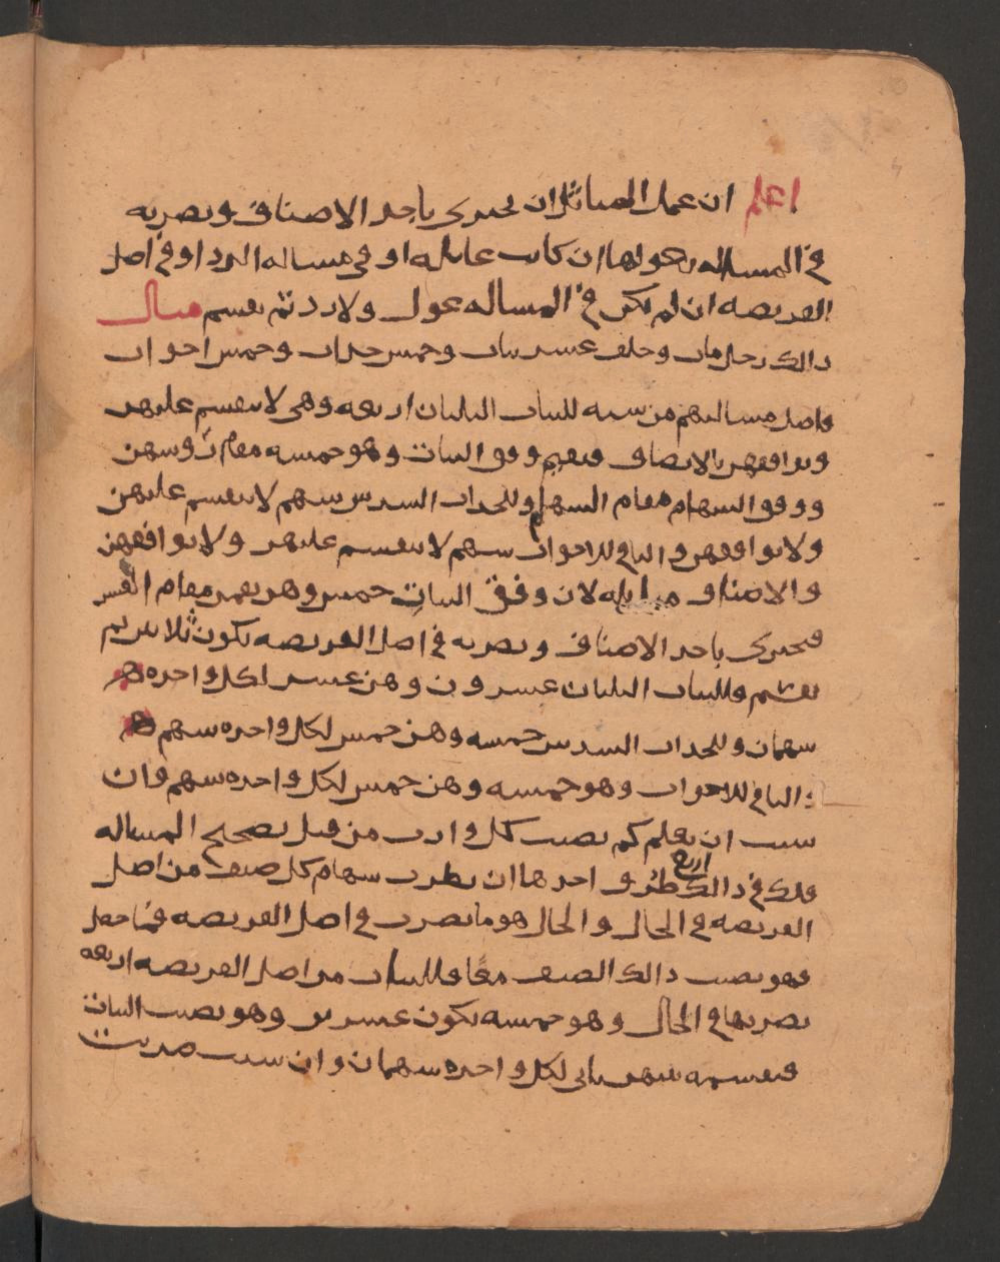 اعلم ان عمل المماثل ان تجتزى باحد الاصناف وتضربه
في المساله بعولها ان كانت عايله او في مساله الرد او في اصل
الفريضه ان لم يكن في المساله عول ولا رد ثم تقسم مثال
ذالك رجل مات وخلف عشر بنات وخمس جدات وخمس اخوات
فاصل مسالتهم من سته للبنات الثلثان اربعه وهي لا تنقسم عليهن
وتوافقهن بالانصاف فتقيم وفق البنات وهو خمسه مقام رؤسهن
ووفق السهام مقام السهام وللجدات السدس سهم لا ينقسم عليهن
ولا يوافقهن والباقي للاخوات سهم لا ينقسم عليهن ولا يوافقهن
والاصناف متماثله لان وفق البنات خمس وهو يقيم مقام
فتجتزى باحد الاصناف وتضربه في اصل الفريضه تكون ثلاثين ثم
تقسم فللبنات الثلثان عشرون وهن عشر لكل واحده
سهمان وللجدات السدس خمسه وهن خمس لكل واحده سهم
والباقي للاخوات وهو خمسه وهن خمس لكل واحده سهم وان
شيت ان تعلم كم نصيب كل وارث من قبل تصحيح المساله
فلك في ذالك اربع طرق احدها ان تضرب سهام كل صنف من اصل
الفريضه في الحال والحال هو ما تضرب في اصل الفريضه فما حصل
فهو نصيب ذالك الصنف معًا فللبنات من اصل الفريضه اربعه
تضربها في الحال وهو خمسه تكون عشرين وهو نصيب البنات
فتقسمه بينهن ياتي لكل واحده سهمان وان شيت ضربت